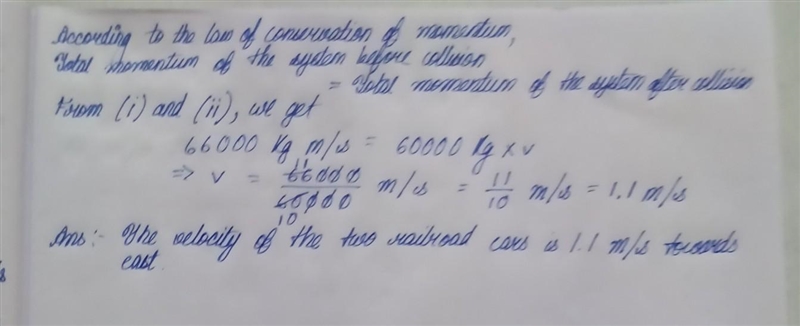 According to the law of conservation of momentum,
Total momentum of the system before collision
= Total momentum of the system after collision
From (i) and (ii), we get
66000 Kg m/s = 60000 Kg x v
⇒ v = 66000/60000 m/s = 11/10 m/s = 1.1 m/s
11
10
Ans :- The velocity of the two railroad cars is 1.1 m/s towards
east.